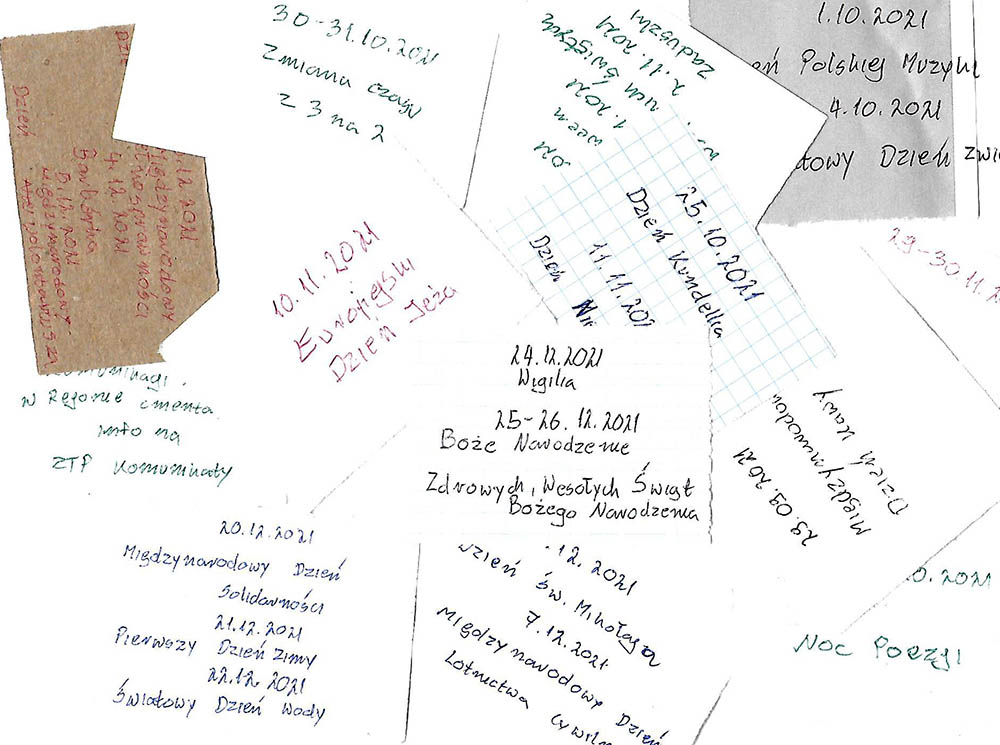 30-31.10.2021
Zmiana czasu
z 3 na 2
Zaduszki
2.11.2021
Świętych
1.11.2021
1.10.2021
Polskiej Muzyki
4.10.2021
Dzień
25.10.2021
Dzień Kundelka
11.11.202
Dzień
29-30.11.2
Dzień
12.2021
Międzynarodowy
4.12.2021
Barbórka
5.12.2021
Międzynarodowy
10.11.2021
Europejski
Dzień Jeża
w Rejonie cmenta
info na
ZTP Komunikaty
24.12.2021
Wigilia
25-26.12.2021
Boże Narodzenie
Zdrowych, Wesołych Świąt
Bożego Narodzenia
29.09.2021
Międzynarodow
Dzień Kawy
20.12.2021
Międzynarodowy Dzień
Solidarności
21.12.2021
Pierwszy Dzień Zimy
22.12.2021
Światowy Dzień Wody
.12.2021
Dzień Św. Mikołaja
7.12.2021
Międzynarodowy Dzień
Lotnictwa Cywiln
0.2021
Noc Poezji